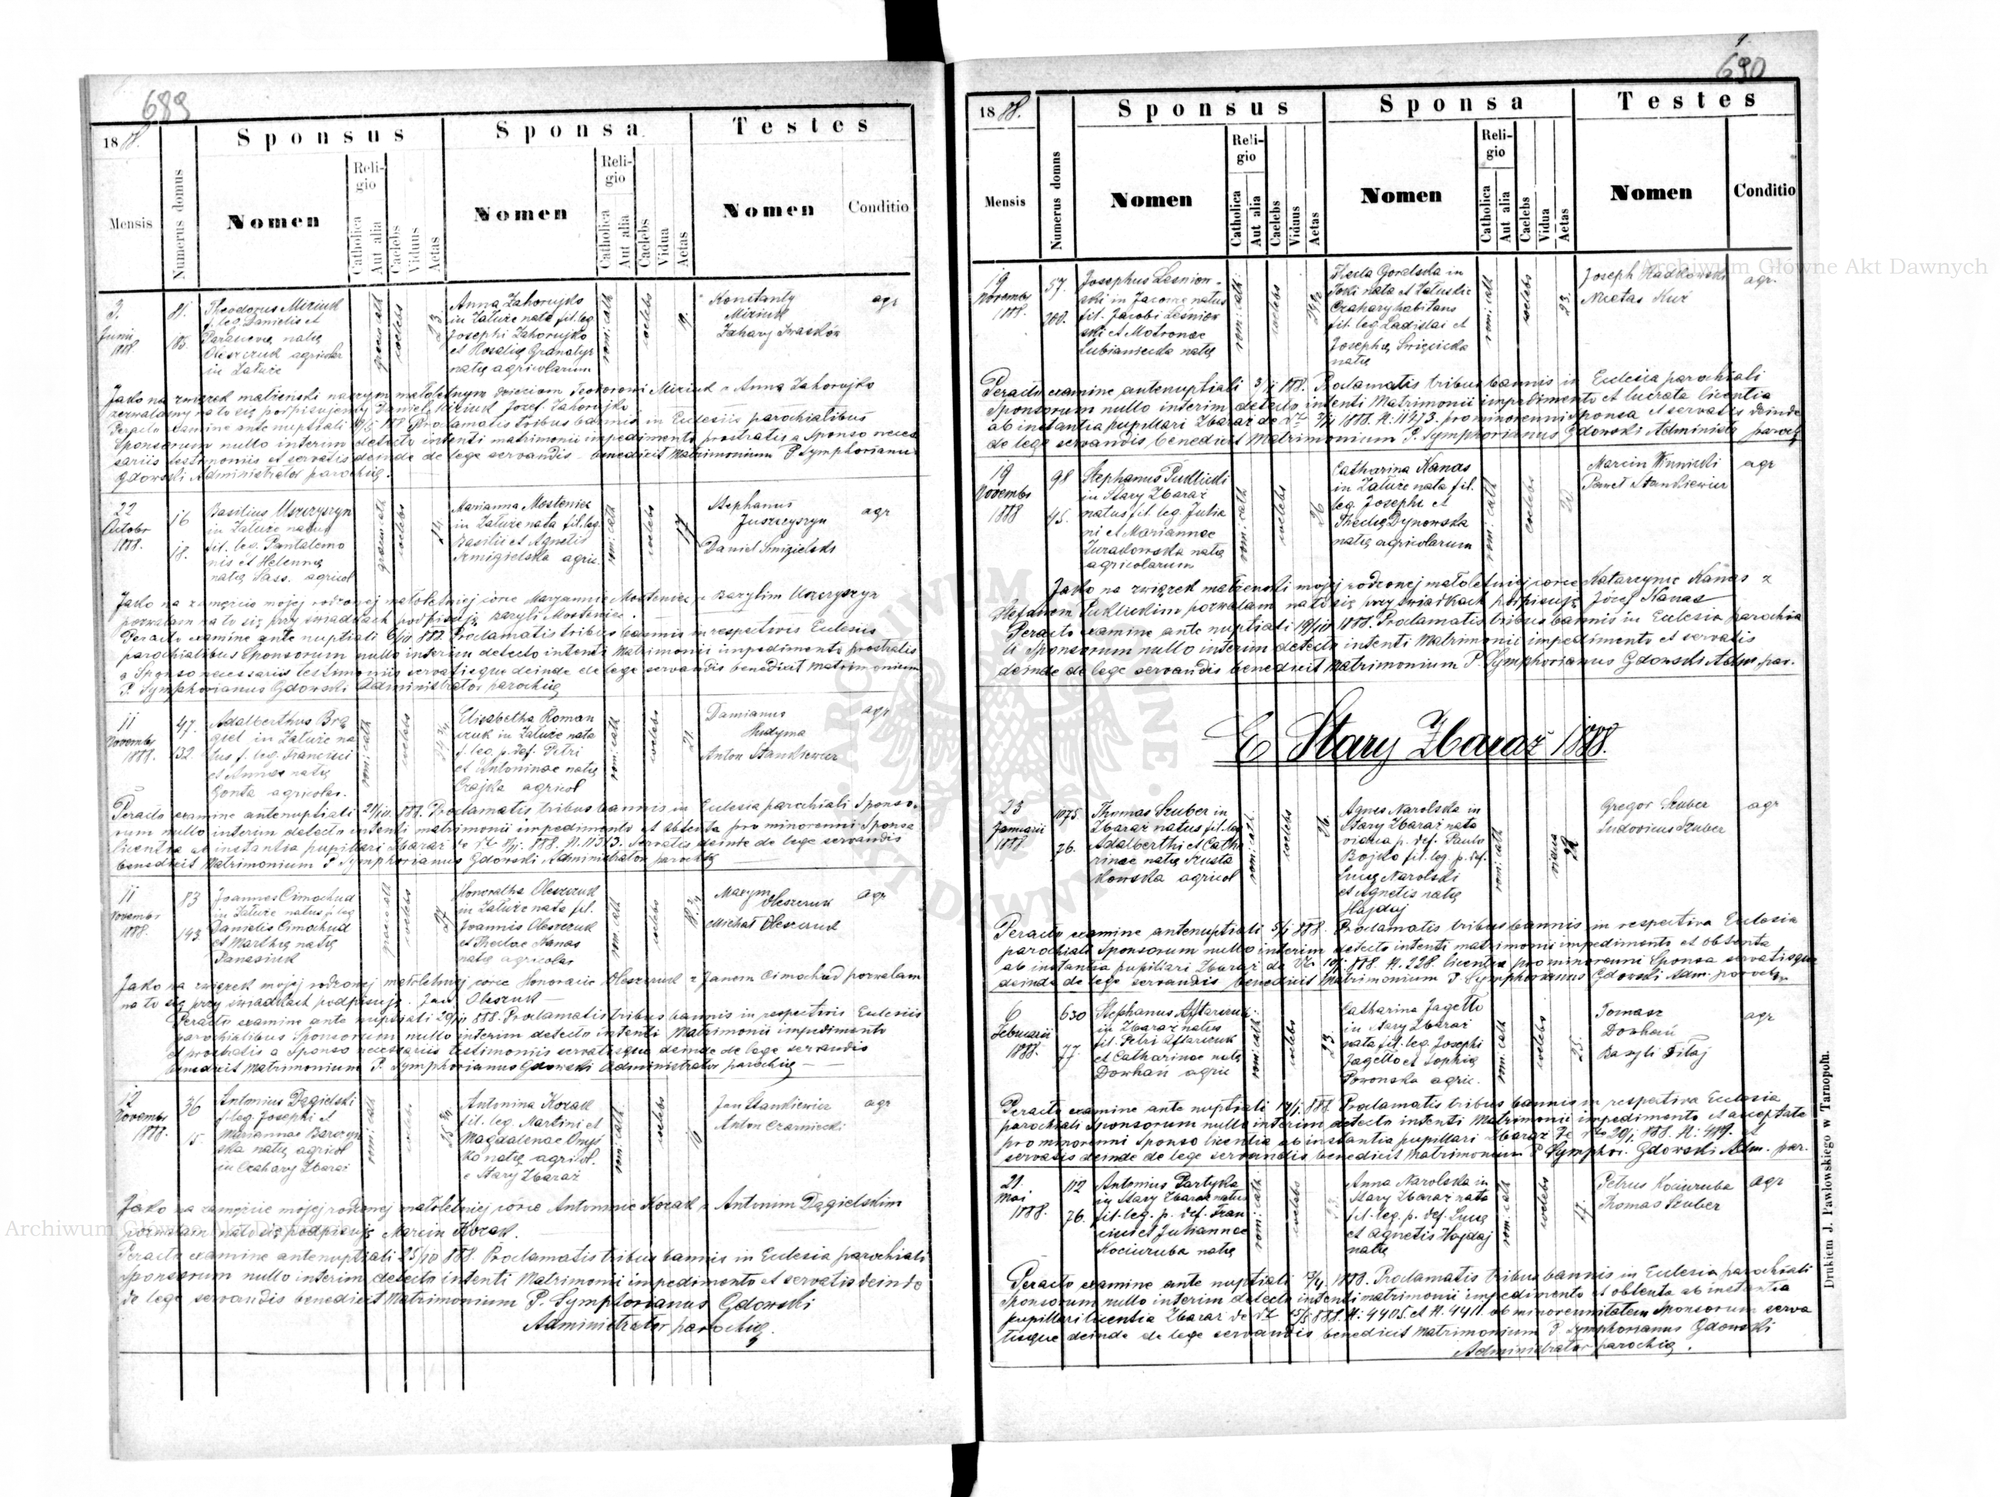 689
1888.
Sponsus
Sponsa
Testes
Mensis
Numerus domus
Nomen
Religio
Catholica
Aut alia
Caelebs
Viduus
Aetas
Nomen
Religio
Catholica
Aut alia
Caelebs
Vidua
Aetas
Nomen
Conditio
3.
Junii
1888
81.
186.
Theodorus Miziuk
f. leg. Danielis et
natę
Oleszczuk agricolar
in Załuże
coelebs
23
Anna Zahorujko
in Załuże nata fil. leg
Josephi Zahorujko
et Rosalię Granatyr
natę agricolarum
rom: cath
coelebs
Konstanty
Miziuk
Zachary
agr
Jako na związek małżeński naszym małoletnym dzieciom Teodorowi Miziuk z Anną Zahorujko
zezwalamy na to się podpisujemy Daniel Miziuk Józef Zahorujko
Peracto examine ante nuptiali 888 Proclamatis tribus bannis in Ecclesiis parochialibus
Sponsorum nullo interim detecto intenti matrimonii impedimento prostratis a Sponso neces
sariis testimoniis et servatis deinde de lege servandis benedicit Matrimonium P Symphorianus
Gdowski Administrator parochię.
22
Octobr
1888.
16
18.
Basilius Uszczyszyn
in Załuże natus
fil. leg. Pantalemo
nis et Helennę
natę Sass. agricol
coelebs
24
Marianna Mosteniec
in Załuże nata fil. leg
Basilii et Agnetis
Smigielska agric.
rom: cath
coelebs
17
Stephanus
Juszczyszyn
Daniel Smigielski
agr
Jako na zamęście mojej rodzonej małoletniej córce Maryannie Mosteniec z Bazylim Uszczyszyn
pozwalam na to się przy świadkach podpisuję Bazyli Mosteniec.
Peracto examine ante nuptiali 888. Proclamatis tribus bannis in respectivis Ecclesiis
parochialibus Sponsorum nullo interim detecto intenti Matrimonii impedimento prostratis
a Sponso necessariis testimoniis servatisque deinde de lege servandis benedicit Matrimonium
P. Symphorianus Gdowski Administrator parochię
11
Novembr
1888.
47.
132.
Adalberthus Brą
giel in Załuże na
tus f. leg. Francisci
et Annae natę
Gonta agricolar.
rom: cath
coelebs
Elisabetha Roman
czuk in Załuże nata
f. leg. p. def. Petri
et Antoninae natę
Czajka agricol
rom: cath
coelebs
21.
Damianus
Hudyma
Anton Stankiewicz
agr
Peracto examine antenuptiali 888. Proclamatis tribus bannis in Ecclesia parochiali Sponso
rum nullo interim detecto intenti matrimonii impedimento et obtenta pro minorenni Sponsa
licentia ab instantia pupillari Zbaraż 888. Servatis deinde de lege servandis
benedicit Matrimonium P Symphorianus Gdowski Administrator parochię
11
Novembr
1888.
83
143
Joannes Cimochud
in Załuże natus f. leg
Danielis Cimochud
et Marthę natę
Panasiuk
coelebs
27
Honoratha Oleszczuk
in Załuże nata fil.
Joannis Oleszczuk
et Theclae Nanas
natę agricolar
rom: cath
coelebs
Maxym
Oleszczuk
Michał Oleszczuk
agr
Jako na związek mojej rodzonej małoletniej córce Honoracie Oleszczuk z Janem Cimochud pozwalam
na to się przy świadkach podpisuję. Jan Oleszczuk
Peracto examine ante nuptiali 888. Proclamatis tribus bannis in respectivis Ecclesiis
parochialibus Sponsorum nullo interim detecto intenti Matrimonii impedimento
et prostratis a Sponso necessariis testimoniis servatisque deinde de lege servandis
benedicit Matrimonium P. Symphorianus Gdowski Administrator parochię
12
Novembr
1888.
36
15.
Antonius Dągielski
f. leg. Josephi et
Mariannae Barczyń
ska natę agricol
in Czahary Zbaraż
rom: cath
coelebs
Antonina Kozak
fil. leg. Martini et
Magdalenae Onyś
ko natę agricol.
e Stary Zbaraż
rom: cath
coelebs
19
Jan Stankiewicz
Anton Czarniecki
agr
Jako na zamęście mojej rodzonej małoletniej córce Antoninie Kozak z Antonim Dągielskim
pozwalam na to się podpisuję Marcin Kozak.
Peracto examine antenuptiali 25/10 888. Proclamatis tribus bannis in Ecclesia parochiali
Sponsorum nullo interim detecto intenti Matrimonii impedimento et servatis deinde
de lege servandis benedicit Matrimonium P. Symphorianus Gdowski
Administrator parochię.
690
1888.
Sponsus
Sponsa
Testes
Mensis
Numerus domus
Nomen
Religio
Catholica
Aut alia
Caelebs
Viduus
Aetas
Nomen
Religio
Catholica
Aut alia
Caelebs
Vidua
Aetas
Nomen
Conditio
19
Novembr
1888.
57.
200.
Josephus Leśniow
ski in Jacowce natus
fil. Jacobi Leśniow
ski et Motronae
Lubianiecka natę
rom: cath:
coelebs
Thecla Goralska in
nata et Załuskie
Czahary habitans
fil. leg Ladislai et
Josephę Swięcicka
natę
rom: cath
coelebs
23.
Joseph Hadkowski
Mictas Kuź
agr.
Peracto examine antenuptiali 888. Proclamatis tribus bannis in Ecclesia parochiali
Sponsorum nullo interim detecto intenti Matrimonii impedimento et lucrata licentia
ab instantia pupillari Zbaraż 1888. N: 11473. pro minorenni sponsa et servatis deinde
de lege servandis benedicit Matrimonium P. Symphorianus Gdowski Administr paroch
19
Novembr
1888
98
45.
Stephanus Pudlicki
in Stary Zbaraż
natus fil. leg. Julia
ni et Mariannae
Żuradowska natę
agricolarum
rom: cath
coelebs
26
Catharina Kanas
in Załuże nata fil.
leg. Josephi et
Theclę Dynowska
natę agricolarum
rom: cath
coelebs
20
Marcin Winnicki
Paweł Stankiewicz
agr
Jako na związek małżeński mojej rodzonej małoletniej córce Katarzynie Kanas z
Stefanem Pudlickim pozwalam na to się przy świadkach podpisuję Józef Kanas
Peracto examine ante nuptiali 1888. Proclamatis tribus bannis in Ecclesia parochia
li Sponsorum nullo interim detecto intenti Matrimonii impedimento et servatis
deinde de lege servandis benedicit Matrimonium P. Symphorianus Gdowski Adm. par.
E Stary Zbaraż 1888.
23
Januarii
1888
1075
26.
Thomas Szuber in
Zbaraż natus fil. leg
Adalberthi et Catha
rinae natę Szusta
kowska agricol
rom: cat.
coelebs
26.
Agnes Narolska in
Stary Zbaraż nata
vidua p. def. Paulo
Bojko fil. leg. p. def.
Lucę Narolski
et Agnetis natę
Hajdaj
rom: cath
vidua
22
Gregor Szuber
Ludovicus Szuber
agr
Peracto examine antenuptiali 5/1 888. Proclamatis tribus bannis in respectiva Ecclesia
parochiali Sponsorum nullo interim detecto intenti matrimonii impedimento et obtenta
ab instantia pupillari Zbaraż 888. N. 228. licentia pro minorenni Sponsa servatisque
deinde de lege servandis benedicit Matrimonium P. Symphorianus Gdowski Adm. paroch
6
Februarii
1888.
630
77.
Stephanus Aftarczuk
in Zbaraż natus
fil. Petri Aftarczuk
et Catharinae natę
Dorhań agric
rom: cath
coelebs
23.
Catharina Jagełło
in Stary Zbaraż
nata fil. leg. Josephi
Jagełło et Sophię
Poronska agric.
rom: cath
coelebs
25.
Tomasz
Dorhań
Bazyli Fitaj
agr
Peracto examine ante nuptiali 888. Proclamatis tribus bannis in respectiva Ecclesia
parochiali Sponsorum nullo interim detecto intenti Matrimonii impedimento et acceptata
pro minorenni Sponso licentia ab instantia pupillari Zbaraż 20/1 888. N: 419. et
servatis deinde de lege servandis benedicit Matrimonium P. Symphor. Gdowski Adm. par.
21.
Mai
1888.
112
76.
Antonius Partyka
in Stary Zbaraż natus
fil. leg. p. def. Fran
cisci et Juliannae
Kociuruba natę
rom: cath
coelebs
Anna Narolska in
Stary Zbaraż nata
fil. leg. p. def. Lucę
et agnetis Hajdaj
natę
rom: cath
coelebs
17
Petrus Kociuruba
Thomas Szuber
agr
Peracto examine ante nuptiali 1888. Proclamatis tribus bannis in Ecclesia parochiali
Sponsorum nullo interim detecto intenti matrimonii impedimento et obtenta ab instantia
pupillari licentia Zbaraż 888. N: 4405. et N. 4411 ob minorennitatem Sponsorum serva
tisque deinde de lege servandis benedicit Matrimonium P. Symphorianus Gdowski
Administrator parochię.
Drukiem J. Pawłowskiego w Tarnopolu.
Archiwum Główne Akt Dawnych
Archiwum Główne Akt Dawnych
ARCHIWUM GŁÓWNE AKT DAWNYCH